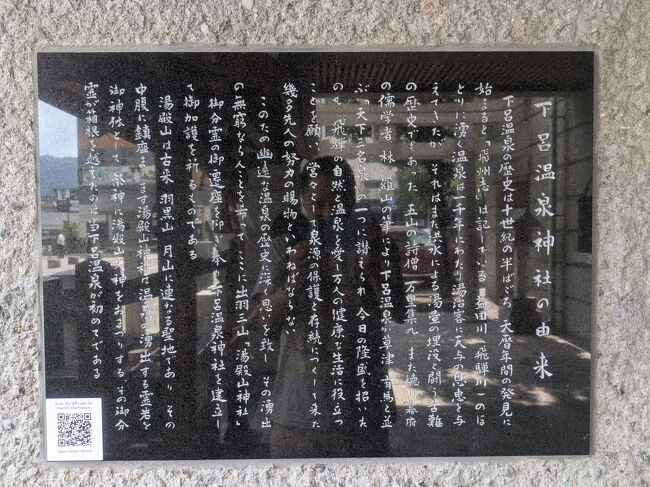 下呂温泉神社の由来
下呂温泉の歴史は十世紀の半ばごろ、天暦年間の発見に
始まると「飛州志」は記している。益田川(飛騨川)のほ
とりに湧く温泉は一千年にわたり湯治客に天与の恩恵を与
えてきたが、それはまた洪水による湯壺の埋没と闘う苦難
の歴史でもあった。五山の詩僧 万里集九、また徳川幕府
の儒学者 林 羅山の筆により下呂温泉が草津、有馬と並
ぶ「天下三名泉」の一つに讃えられ、今日の隆盛を招いた
のも、飛騨の自然と温泉を愛し万人の健康な生活に役立つ
ことを願い、営々として泉源の保護と存続につくして来た
幾多先人の努力の賜物といわねばならない。
このたび幽遠な温泉の歴史に深く思いを致し、その湧出
の無窮ならんことを希って、ここに出羽三山「湯殿山神社」
御分霊の御霊座を仰ぎ奉り下呂温泉神社を建立し
て御加護を祈るものである。
湯殿山は古来 羽黒山、月山に連なる聖地であり、その
中腹に鎮座まします湯殿山神社は温泉の湧出する霊岩を
御神体として、祭神に湯殿山大神をおまつりする。その御分
霊が箱根を越えたのは当下呂温泉が初めてである
Scan the QR code for
tourist information.
Gero Onsen Shrine